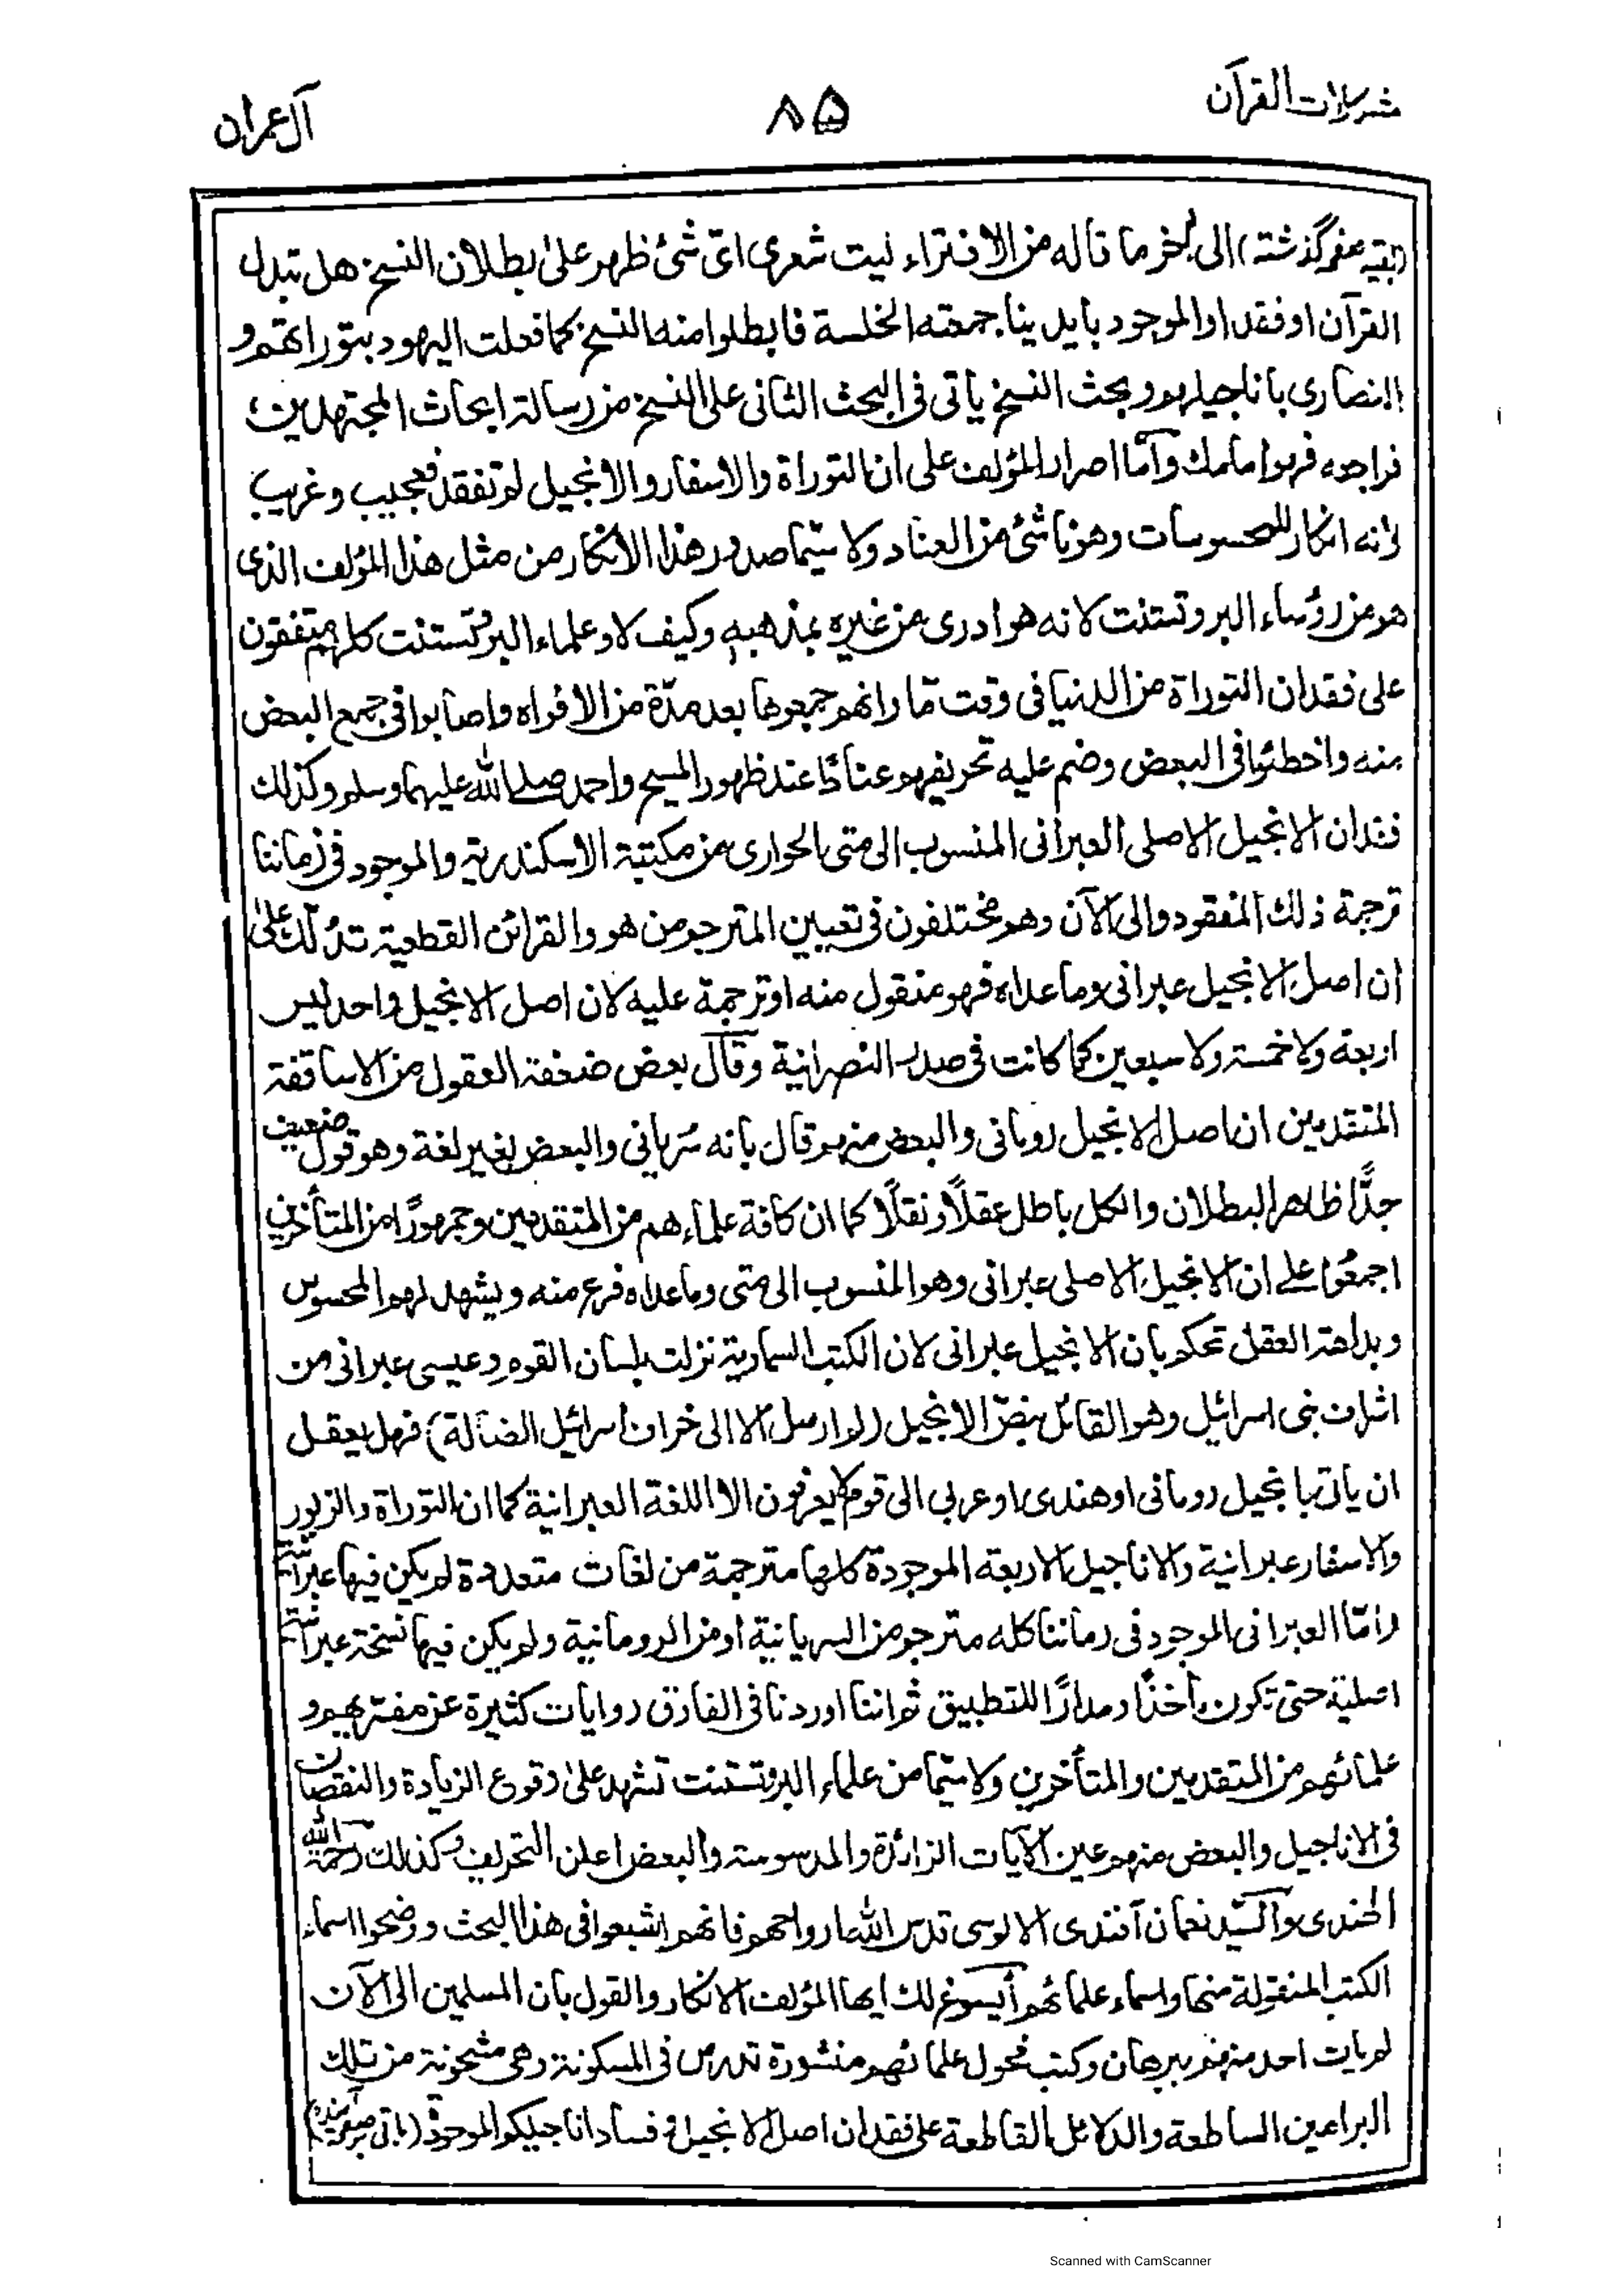 مشكلات القرآن
٨٥
آل عمران
(بقیہ صفحہ گذشتہ) الى اٰخر ما قاله من الافتراء ليت شعرى اىّ شئ ظهر علىٰ بطلان النسخ هل تبدل
القرآن او فقد او الموجود بايدينا جمعته الخلسة فابطلوا منه النسخ كما فعلت اليهود بتوراتهم و
النصارى باناجيلهم وبحث النسخ يأتى فى البحث الثانى على النسخ من رسالة ابحاث المجتهدين
فراجعه فهو امامك وأمّا اصرار المؤلف على ان التوراة والاسفار والانجيل لم تفقد فعجيب وغريب
لانه انكار للمحسوسات وهو ناشئ من العناد ولا سيّما صدور هذا الانكار من مثل هذا المؤلف الذى
هو من رؤساء البروتستنت لانه هو ادرى من غيره بمذهبه وكيف لا وعلماء البروتستنت كلهم متفقون
على فقدان التوراة من الدنيا فى وقت مّا وانهم جمعوها بعد مدّة من الافواه واصابوا فى جمع البعض
منه واخطئوا فى البعض وضم عليه تحريفهم عنادًا عند ظهور المسيح واحمد صلى الله عليهما وسلم وكذلك
فقدان الانجيل الاصلى العبرانى المنسوب الى متى الحوارى من مكتبة الاسكندرية والموجود فى زماننا
ترجمة ذلك المفقود والى الآن وهم مختلفون فى تعيين المترجم من هو والقرائن القطعية تدلك علىٰ
ان اصل الانجيل عبرانى وما عداه فهو منقول منه او ترجمة عليه لان اصل الانجيل واحد ليس
اربعة ولا خمسة ولا سبعين كما كانت فى صدر النصرانية وقال بعض ضعفة العقول من الاساقفة
المتقدمين ان اصل الانجيل رومانى والبعض منهم قال بأنه سريانى والبعض بغير لغة وهو قول ضعيف
جدًّا ظاهر البطلان والكل باطل عقلًا ونقلًا كما ان كافة علماءهم من المتقدمين وجمهورًا من المتأخرين
اجمعوا على ان الانجيل الاصلى عبرانى وهو المنسوب الى متى وما عداه فرع منه ويشهد لهم المحسوس
وبداهة العقل تحكم بان الانجيل عبرانى لان الكتب السماوية نزلت بلسان القوم وعيسى عبرانى من
اشراف بنى اسرائيل وهو القائل بنصّ الانجيل (لم ارسل الا الى خراف اسرائيل الضالة) فهل يعقل
ان يأتى بانجيل رومانى او هندى او عربى الى قوم لا يعرفون الا اللغة العبرانية كما ان التوراة والزبور
والاسفار عبرانية والاناجيل الاربعة الموجودة كلها مترجمة من لغات متعددة لم يكن فيها عبرانية
وامّا العبرانى الموجود فى زماننا كله مترجم من السريانية او من الرومانية ولم يكن فيها نسخة عبرانية
اصلية حتى تكون مأخذًا ومدارًا للتطبيق ثم اننا اوردنا فى الفارق روايات كثيرة عن مفسّريهم و
علمائهم من المتقدمين والمتأخرين ولا سيّما من علماء البروتستنت تشهد علىٰ وقوع الزيادة والنقصان
فى الاناجيل والبعض منهم عين الآيات الزائدة والمدسوسة والبعض اعلن التحريف وكذلك رحمة الله
الهندى والسيّد نعمان آفندى الالوسى قدس الله ارواحهم فانهم اشبعوا فى هذا البحث ووضحوا اسماء
الكتب المنقولة منها واسماء علمائهم أيسوغ لك ايها المؤلف الانكار والقول بأن المسلمين الى الآن
لم يات احد منهم ببرهان وكتب فحول علمائهم منشورة تدرس فى المسكونة وهى مشحونة من تلك
البراهين الساطعة والدلائل القاطعة على فقدان اصل الانجيل وفساد اناجيلكم الموجودة (باقی صفحہ آئندہ)
Scanned with CamScanner